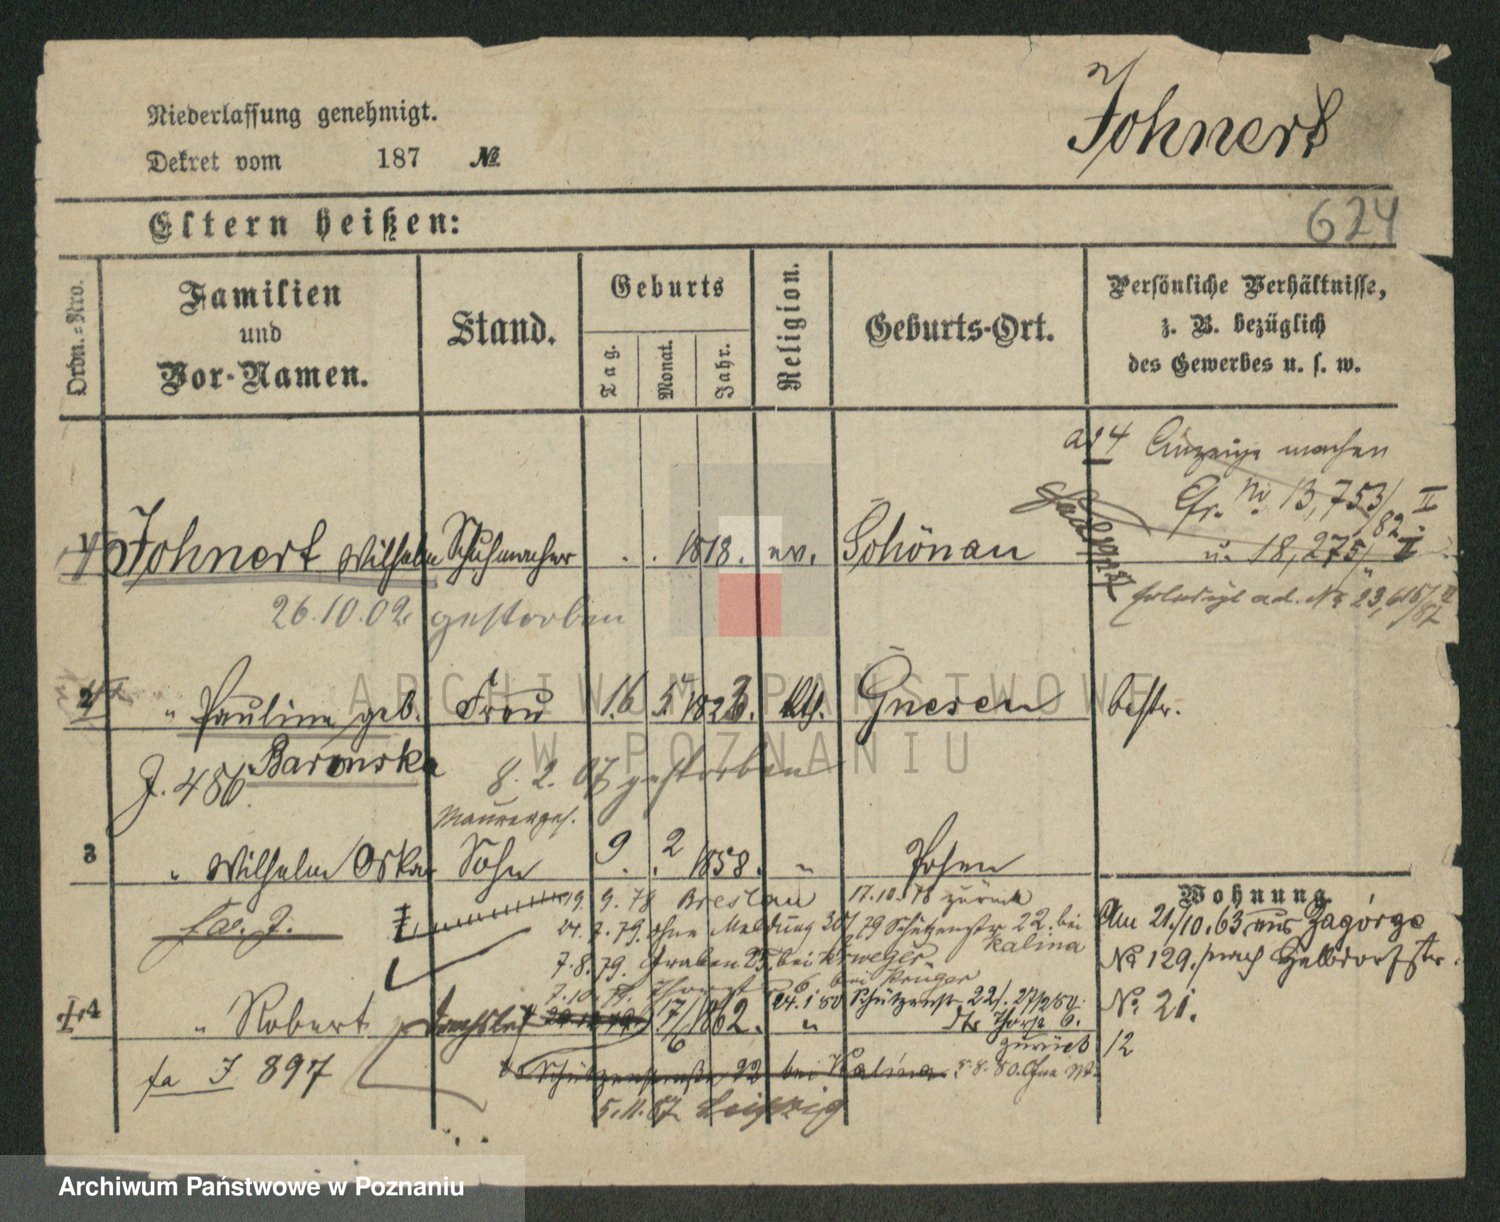 Niederlassung genehmigt.
Dekret vom 187 №
Johnert
Eltern heißen:
624
Ordn.-Nro.
Familien
und
Vor-Namen.
Stand.
Geburts
Tag.
Monat.
Jahr.
Religion.
Geburts-Ort.
Persönliche Verhältnisse,
z. B. bezüglich
des Gewerbes u. s. w.
ad 4 Anzeige machen
Gr. No 13,753/82 II
u. 18,275/ II
1 Johnert Wilhelm Schuhmacher . . 1818. ev. Schönau
erledigt ad. No 23,615/82 II
26.10.02 gestorben
2 " Pauline geb. Frau 16 5 1823. kth. Gnesen bestr.
Baronska
J. 486.
8. 2. 07 gestorben
Maurerges.
3 " Wilhelm Oskar Sohn 9. 2. 1858. " Posen
Wohnung.
19. 9. 78 Breslau 17.10.78 zurück
Am 21./10.63 aus Zagórze
24. 7. 79. ohne Meldung 30/7 79 Schützenstr 22. bei
Kalina
No 129. nach Halbdorfstr.
7. 8. 79. Graben 25 bei
bei Krüger
7.10.79.
24. 1 80 Schützenstr 22/. 27/2/80.
No. 21.
4 " Robert 17/6 1862. "
zurück
12
fa J 897
Schützenstraße 22 bei Kalina 5.8.80. Ohne
5.11.87 Leipzig
ARCHIWUM PAŃSTWOWE
W POZNANIU
Archiwum Państwowe w Poznaniu